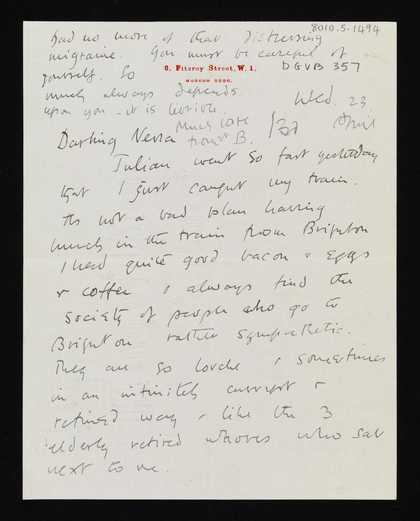 8010.5.1494
had no more of that distressing
migraine. You must be careful of
yourself. So
much always depends
upon you - it is terrible.
8, Fitzroy Street, W. 1.
MUSEUM
DGVB 357
Wed. 23
April
Much love
from B.
Darling Nessa
Julian went so fast yesterday
that I just caught my train.
Its not a bad plan having
lunch in the train from Brighton
I had quite good bacon & eggs
& coffee. I always find the
society of people who go to
Brighton rather sympathetic.
They are so louche, sometimes
in an infinitely corrupt &
refined way, like the 3
elderly retired whores who sat
next to me.